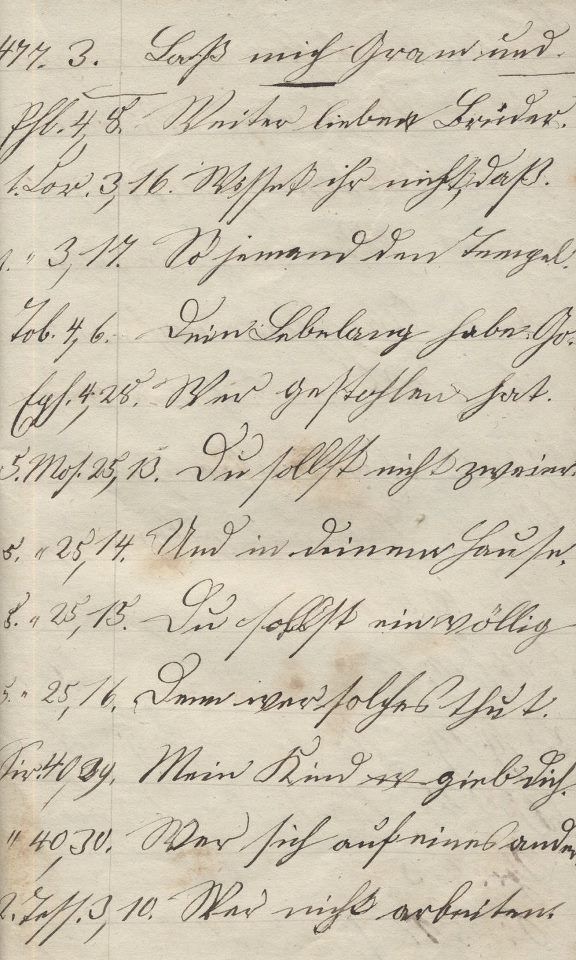 477. 3. Laß mich Gram und.
Phl. 4, 8. Weiter lieben Brüder.
1. Cor. 3, 16. Wisset ihr nicht, daß.
1. " 3, 17. So jemand den Tempel.
Tob. 4, 6. Dein Lebelang habe Go.
Eph. 4, 28. Wer gestohlen hat.
5. Mos. 25, 13. Du sollst nicht zweier.
5. " 25, 14. Und in deinem Hause.
5. " 25, 15. Du sollst ein völlig
5. " 25, 16. Denn wer solches thut.
Sir. 40, 29. Mein Kind gieb dich.
" 40, 30. Wer sich auf eines ander
2. Tess. 3, 10. Wer nicht arbeiten.